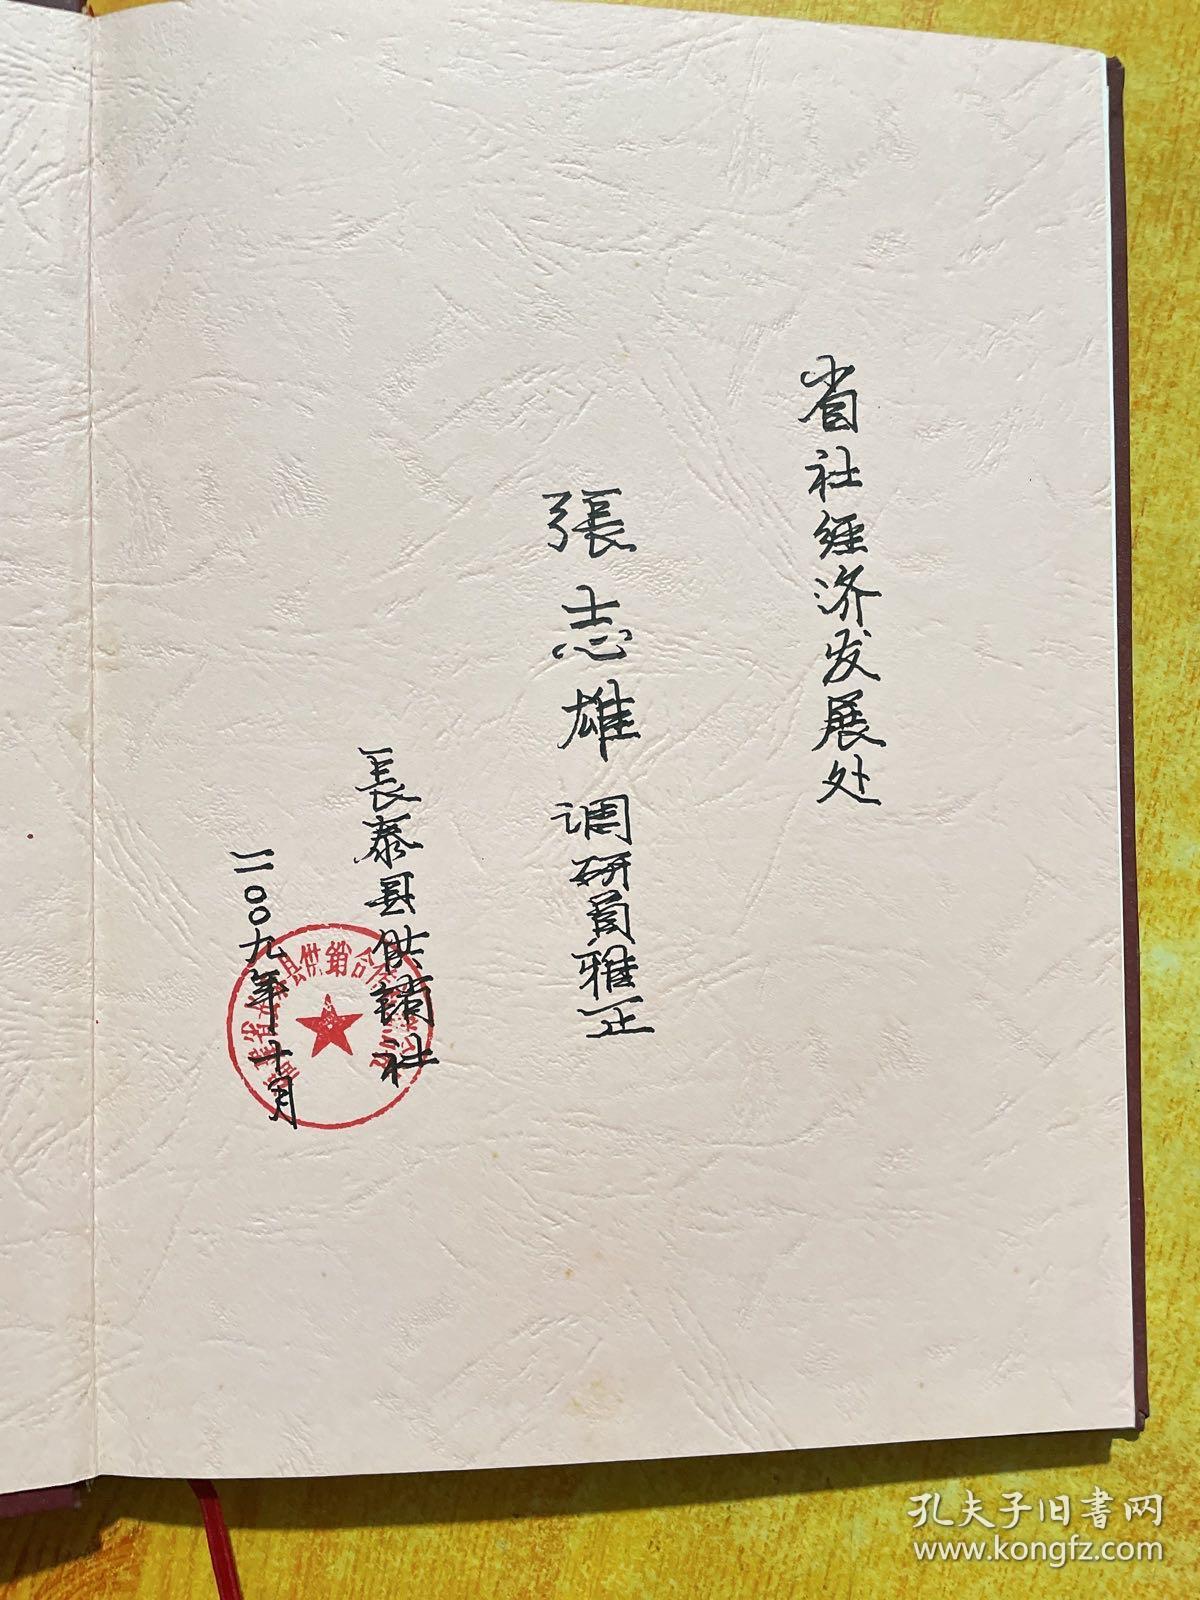 省社经济发展处
張志雄调研员雅正
長泰县供销社
二〇〇九年十月
福建省长泰县供销合作社
孔夫子旧書网
www.kongfz.com